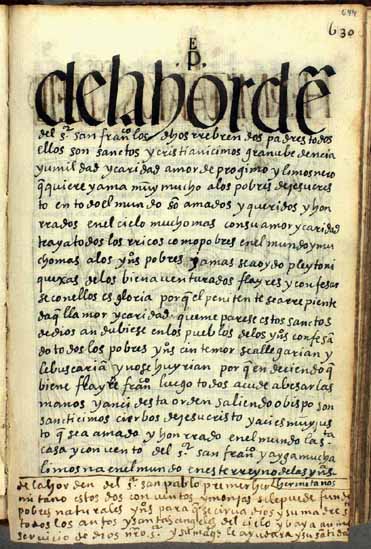 644
630
E
P.
de la hordē
del sr san franco los dhos rrebrendos padres todos
ellos son sanctos y cristianicimos gran ubedencia
y umildad y caridad amor de progimo y limosnero
q̄ quiere y ama muy mucho a los pobres de jesucris
to en todo el mundo sō amados y queridos y hon
rrados en el cielo mucho mas con su amor y caridad
tray a todos los rricos como pobres en el mundo y mu
cho mas a los yns pobres y amas se a oydo pleyto ni
quexas de los bienaventurados flayres y confesar
se con ellos es gloria porq̄ el penitente se arrepiente
daql amor y caridad que me parese estos sanctos
de dios andubiese en los pueblos de los yns confesā
do todos los pobres yns cin temor se allegarian y
le buscaria y no se huyrian porq̄ en deciendo q̄
biene flayre franco luego todos acude a besar las
manos y anci desta orden saliendo obispo son
sancticimos cierbos de jesucristo y aci es muy jus
to q̄ sea amado y honrrado en el mundo la sta
casa y convento del sr san franco y ayga mucha
limosna en el mundo en este rreyno de las yns
de la horden del sr san pablo primer her hermitanos
mitano estos dos conventos y monjas se le puede funda
pobres naturales yns para q̄ se cirua dios y su madre s
todos los santos y santas angeles del cielo y baya aumē
servicio de dios nro s. y su magd le ayuda y su santidad